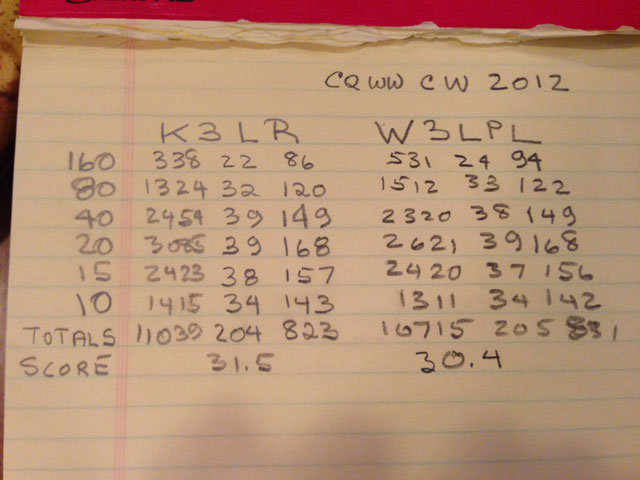 CQWW CW 2012
K3LR W3LPL
160 338 22 86 531 24 94
80 1324 32 120 1512 33 122
40 2454 39 149 2320 38 149
20 3085 39 168 2621 39 168
15 2423 38 157 2420 37 156
10 1415 34 143 1311 34 142
TOTALS 11039 204 823 10715 205 831
SCORE 31.5 30.4